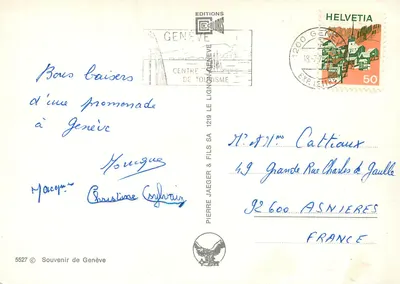 EDITIONS
GENÈVE
CENTRE
DE TOURISME
HELVETIA
50
Bons baisers
d'une promenade
à Genève
Monique
Jacques
Christine Sylvain
PIERRE JAEGER & FILS SA 1219 LE LIGNON/GENÈVE
Mr et Mme Cattiaux
49 Grande Rue Charles de Gaulle
92600 ASNIERES
FRANCE
5527 © Souvenir de Genève